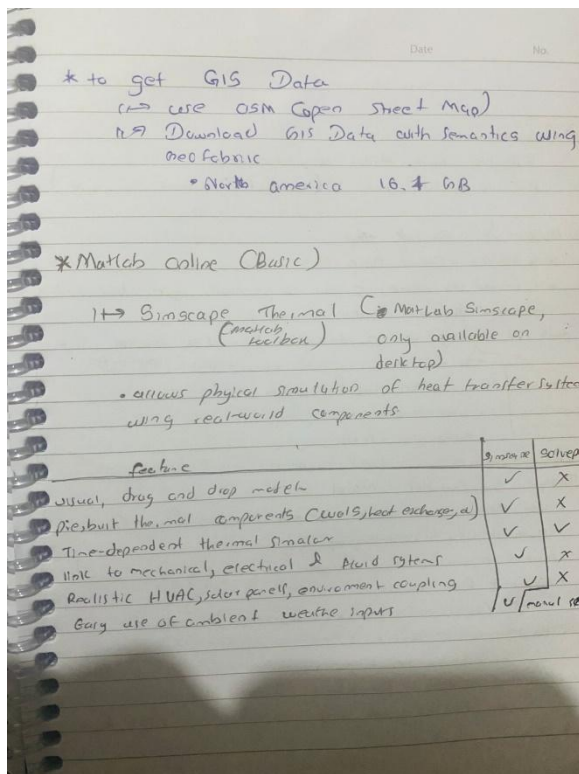 Date No.
* to get GIS Data
↳ use OSM (open street Map)
↳ Download GIS Data with semantics using
geofabric
• North america 16.1 GB
* Matlab online (Basic)
1↦ Simscape Thermal ( MatLab Simscape,
(matlab toolbox) only available on
desktop)
• allows physical simulation of heat transfer system
using real-world components
feature simscape Solvep
visual, drag and drop model ✓ X
piesbuilt thermal components (walls, heat exchange, ) ✓ X
Time-dependent thermal ✓ ✓
link to mechanical, electrical & fluid sytems ✓ X
Realistic HVAC, solar panels, enviroment coupling ✓ X
Easy use of ambient weathe inputs ✓